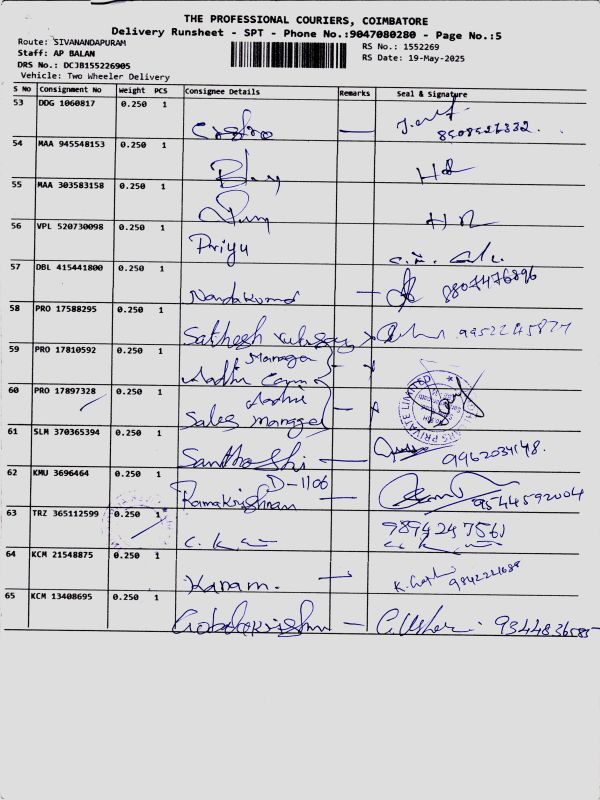 THE PROFESSIONAL COURIERS, COIMBATORE
Delivery Runsheet - SPT - Phone No.:9047080280 - Page No.:5
Route: SIVANANDAPURAM
Staff: AP BALAN
DRS No.: DCJB155226905
Vehicle: Two Wheeler Delivery
RS No.: 1552269
RS Date: 19-May-2025
S No Consignment No Weight PCS Consignee Details Remarks Seal & Signature
53 DDG 1060817 0.250 1
8508527332.
54 MAA 945548153 0.250 1
55 MAA 303583158 0.250 1
56 VPL 520730098 0.250 1 Priyu
57 DBL 415441800 0.250 1 Nandakumar 8807476896
58 PRO 17588295 0.250 1 Sathesh 9952245877
59 PRO 17810592 0.250 1 Manager
60 PRO 17897328 0.250 1
Sales Manager
PRIVATE LIMITED
61 SLM 370365394 0.250 1 Santhoshi 9962034148.
62 KMU 3696464 0.250 1 D-1106
Ramakrishnan 9544592004
63 TRZ 365112599 0.250 1 9894247561
64 KCM 21548875 0.250 1 Kanam.
65 KCM 13408695 0.250 1 C. Usha. 9344836585